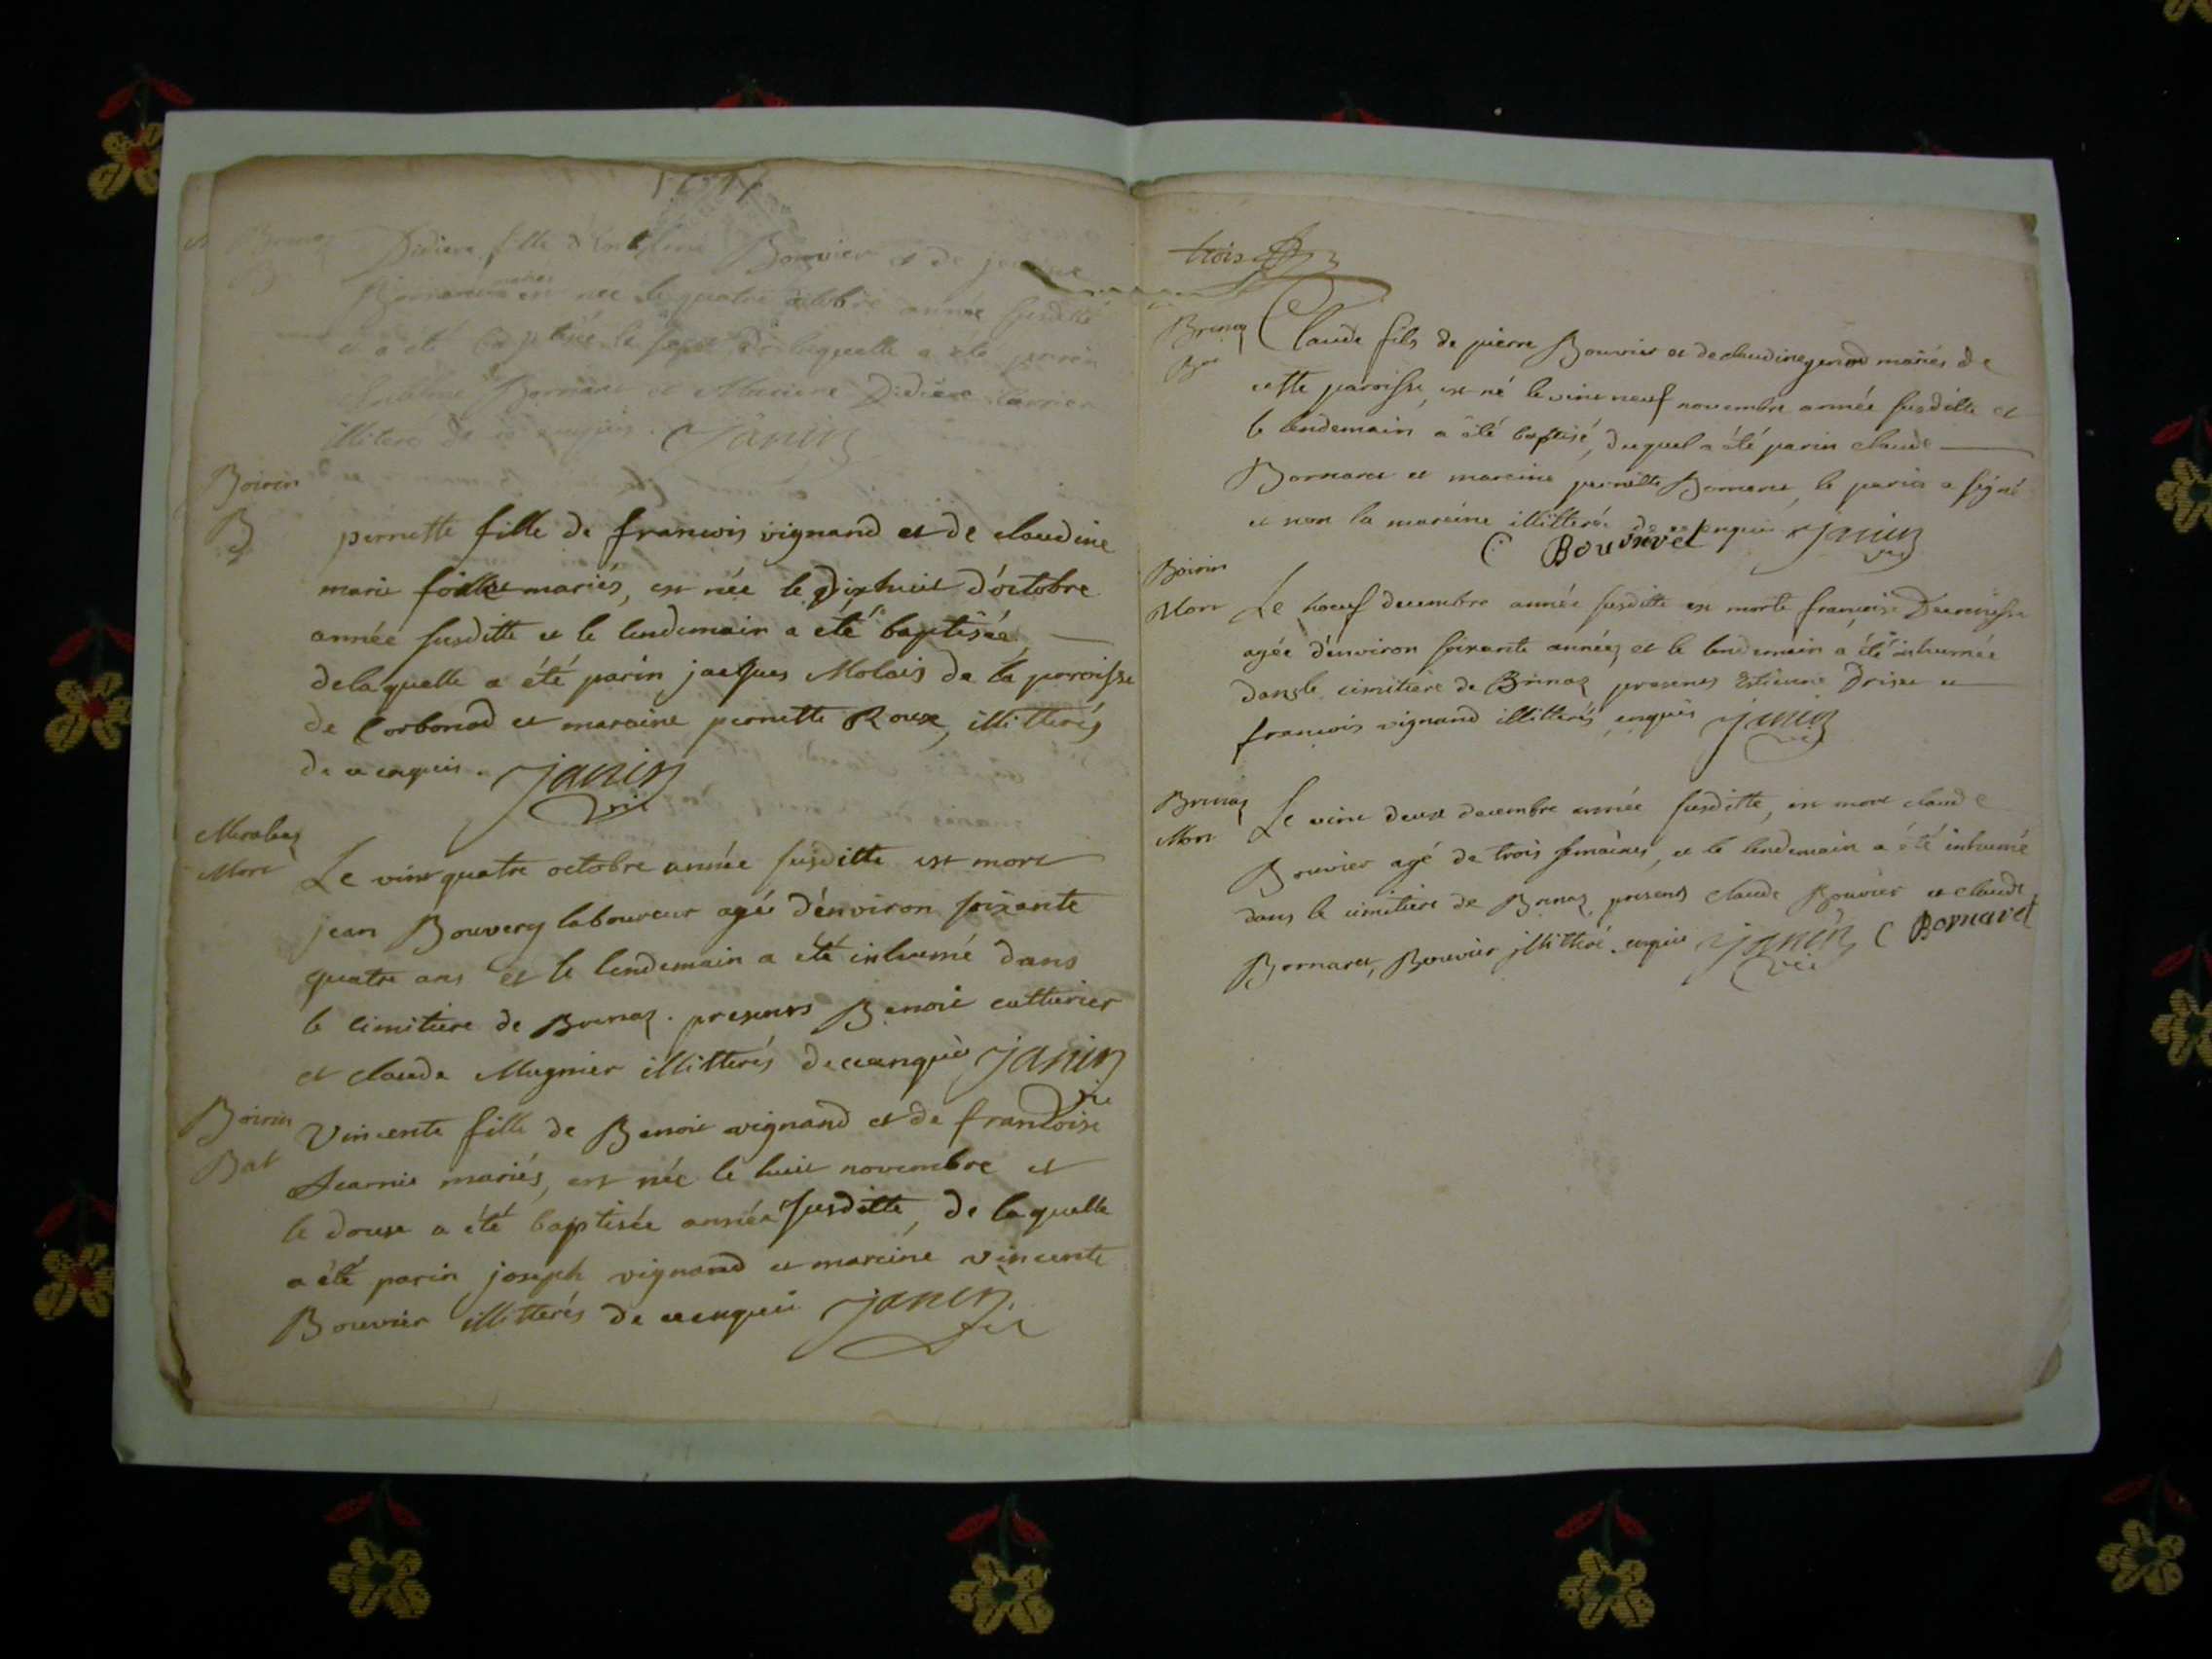 Brinaz
B
Didiere fille d'Enthelme Bouvier et de
mariés est née le quatre octobre année susditte
et a été baptisée le de laquelle a été parin
Enthelme Bornaret et Mareine Didiere
illiteré de ce enquis. Janin
Boirin
B
pernette fille de francois vignand et de claudine
marie mariés, est née le Dixhuit d'octobre
année susditte et le lendemain a été baptisée,
delaquelle a été parin jacques Molais de la paroisse
de Corbonod et maraine pernette Roux, illitterés
de ce enquis. Janin
vic
Meraleaz
Mort
Le vint quatre octobre année susditte est mort
jean Bouvery laboureur agé d'environ soixante
quatre ans et le lendemain a été inhumé dans
le cimitiere de Brinaz. presents Benoit cutturier
et claude Mugnier illitterés de ce enquis Janin
vic
Boirin
Bat
Vincente fille de Benoit vignand et de francoise
mariés, est née le huit novembre et
le douse a été baptisée année susditte, de laquelle
a été parin joseph vignand et mareine vincente
Bouvier illitterés de ce enquis Janin
vic
trois
Brinaz
Bat
Claude fils de pierre Bouvier et de claudine genod mariés de
cette paroisse, est né le vint neuf novembre année susditte et
le lendemain a été baptisé, duquel a été parin claude
Bornaret et mareine pernette Bornaret, le parin a signé
et non la mareine illitterée de ce enquis Janin
vic
Boirin
Mort
Le noeuf decembre année susditte est morte francoise
agée d'environ soixante années et le lendemain a été inhumée
dans le cimitiere de Brinaz presents Estienne et
francois vignand illitterés enquis Janin
vic
Brinaz
Mort
Le vint deux decembre année susditte, est mort claude
Bouvier agé de trois semaines, et le lendemain a été inhumé
dans le cimitiere de Brinaz presents claude Bouvier et claude
Bornaret, Bouvier illitteré enquis Janin C Bornaret
vic